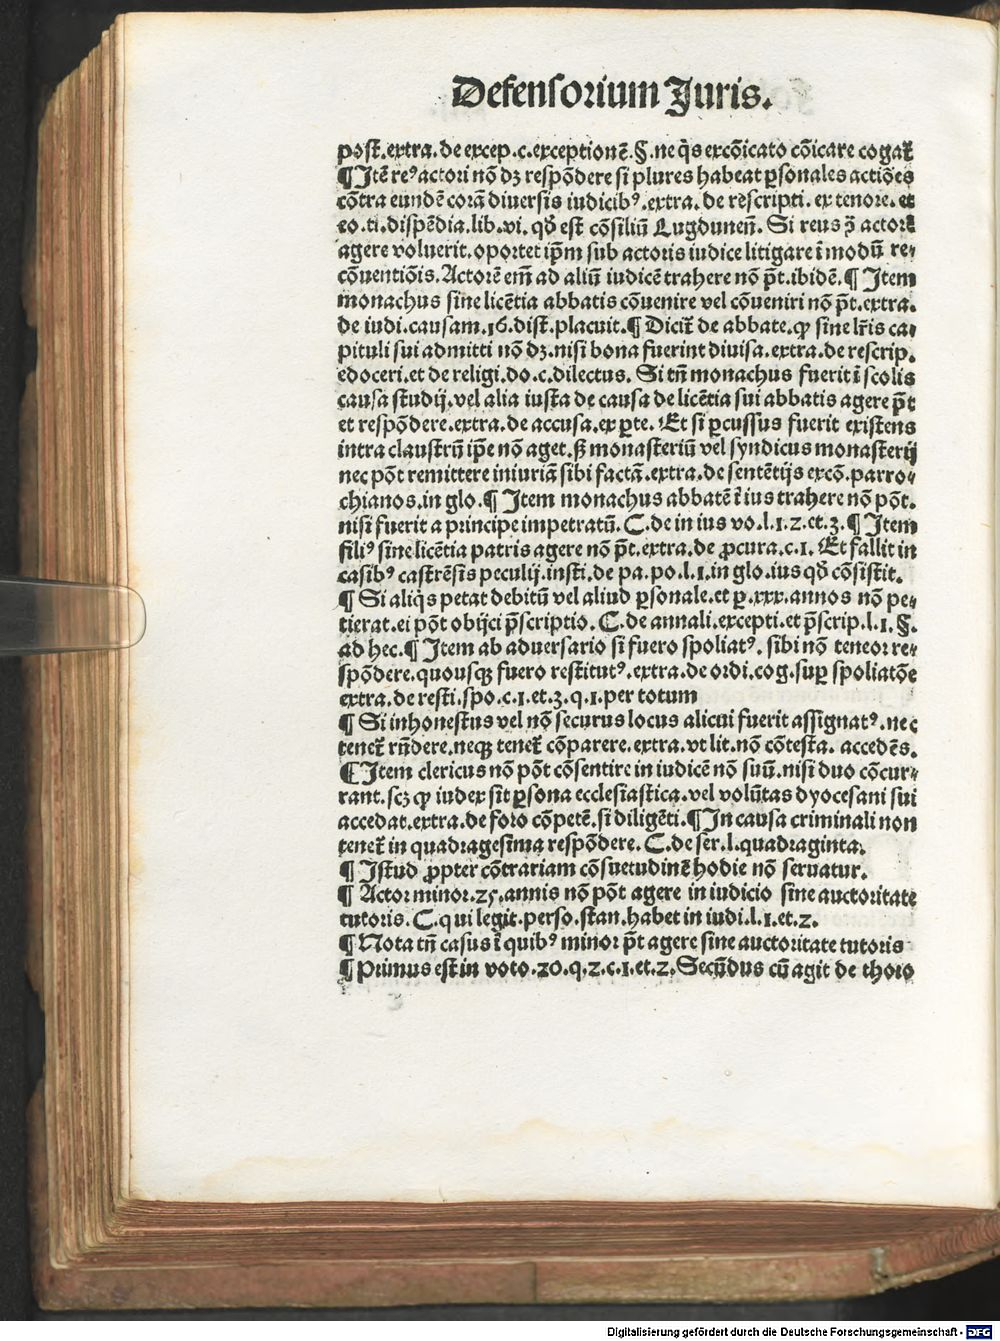 Defensorium Juris.
post̃.extra.de excep.c.exceptionẽ.§.ne q̃s excõicato cõicare cogat̃
¶ Jtẽ reꝰ actori nõ dꝫ respõdere si plures habeat ꝑsonales actiões
cõtra eundẽ corã diuersis iudicibꝰ.extra.de rescripti.ex tenore.et
eo.ti.dispẽdia.lib.vi.qð est cõsiliũ Lugdunen̄. Si reus ꝙ̃ actorẽ
agere voluerit.oportet ip̃m sub actoris iudice litigare ĩ modũ re⸗
cõuentiõis.Actorẽ em̃ ad aliũ iudicẽ trahere nõ p̃t.ibidẽ.¶ Jtem
monachus sine licẽtia abbatis cõuenire vel cõueniri nõ p̃t.extra.
de iudi.causam.16.dist̃.placuit.¶ Dicit̃ de abbate.ꝙ sine lr̃is ca⸗
pituli sui admitti nõ dꝫ.nisi bona fuerint diuisa.extra.de rescrip.
edoceri.et de religi.do.c.dilectus. Si tñ monachus fuerit ĩ scolis
causa studij.vel alia iusta de causa de licẽtia sui abbatis agere p̃t
et respõdere.extra.de accusa.ex ꝑte. Et si ꝑcussus fuerit existens
intra claustrũ ip̃e nõ aget.sꝫ monasteriũ vel syndicus monasterij
nec põt remittere iniuriã sibi factã.extra.de sentẽtijs excõ.parro⸗
chianos.in glo.¶ Jtem monachus abbatẽ ĩ ius trahere nõ põt.
nisi fuerit a principe impetratũ. C.de in ius vo.l.1.2.et.3.¶ Jtem
filiꝰ sine licẽtia patris agere nõ p̃t.extra.de ꝓcura.c.1. Et fallit in
casibꝰ castrẽsis peculij.insti.de pa.po.l.1.in glo.ius qð cõsistit.
¶ Si aliq̃s petat debitũ vel aliud ꝑsonale.et ꝑ.xxx.annos nõ pe⸗
tierat.ei põt obijci p̃scriptio. C.de annali.excepti.et p̃scrip.l.1.§.
ad hec.¶ Jtem ab aduersario si fuero spoliatꝰ. sibi nõ teneor re⸗
spõdere.quousqꝫ fuero restitutꝰ.extra.de ordi.cog.suꝑ spoliatõe
extra.de resti.spo.c.1.et.3.q.1.per totum
¶ Si inhonestus vel nõ securus locus alicui fuerit assignatꝰ.nec
tenet̃ rñdere.neqꝫ tenet̃ cõparere.extra.vt lit.nõ cõtesta. accedẽs.
¶ Jtem clericus nõ põt cõsentire in iudicẽ nõ suũ.nisi duo cõcur⸗
rant.scꝫ ꝙ iudex sit ꝑsona ecclesiastica.vel volũtas dyocesani sui
accedat.extra.de foro cõpetẽ.si diligẽti.¶ Jn causa criminali non
tenet̃ in quadragesima respõdere. C.de fer.l.quadraginta.
¶ Jstud ꝓpter cõtrariam cõsuetudinẽ hodie nõ seruatur.
¶ Actor minor.25.annis nõ põt agere in iudicio sine auctoritate
tutoris. C.qui legit.perso.stan.habet in iudi.l.1.et.2.
¶ Nota tñ casus ĩ quibꝰ minor p̃t agere sine auctoritate tutoris
¶ Primus est in voto.20.q.2.c.1.et.2.Secũdus cũ agit de thoro
Digitalisierung gefördert durch die Deutsche Forschungsgemeinschaft - DFG